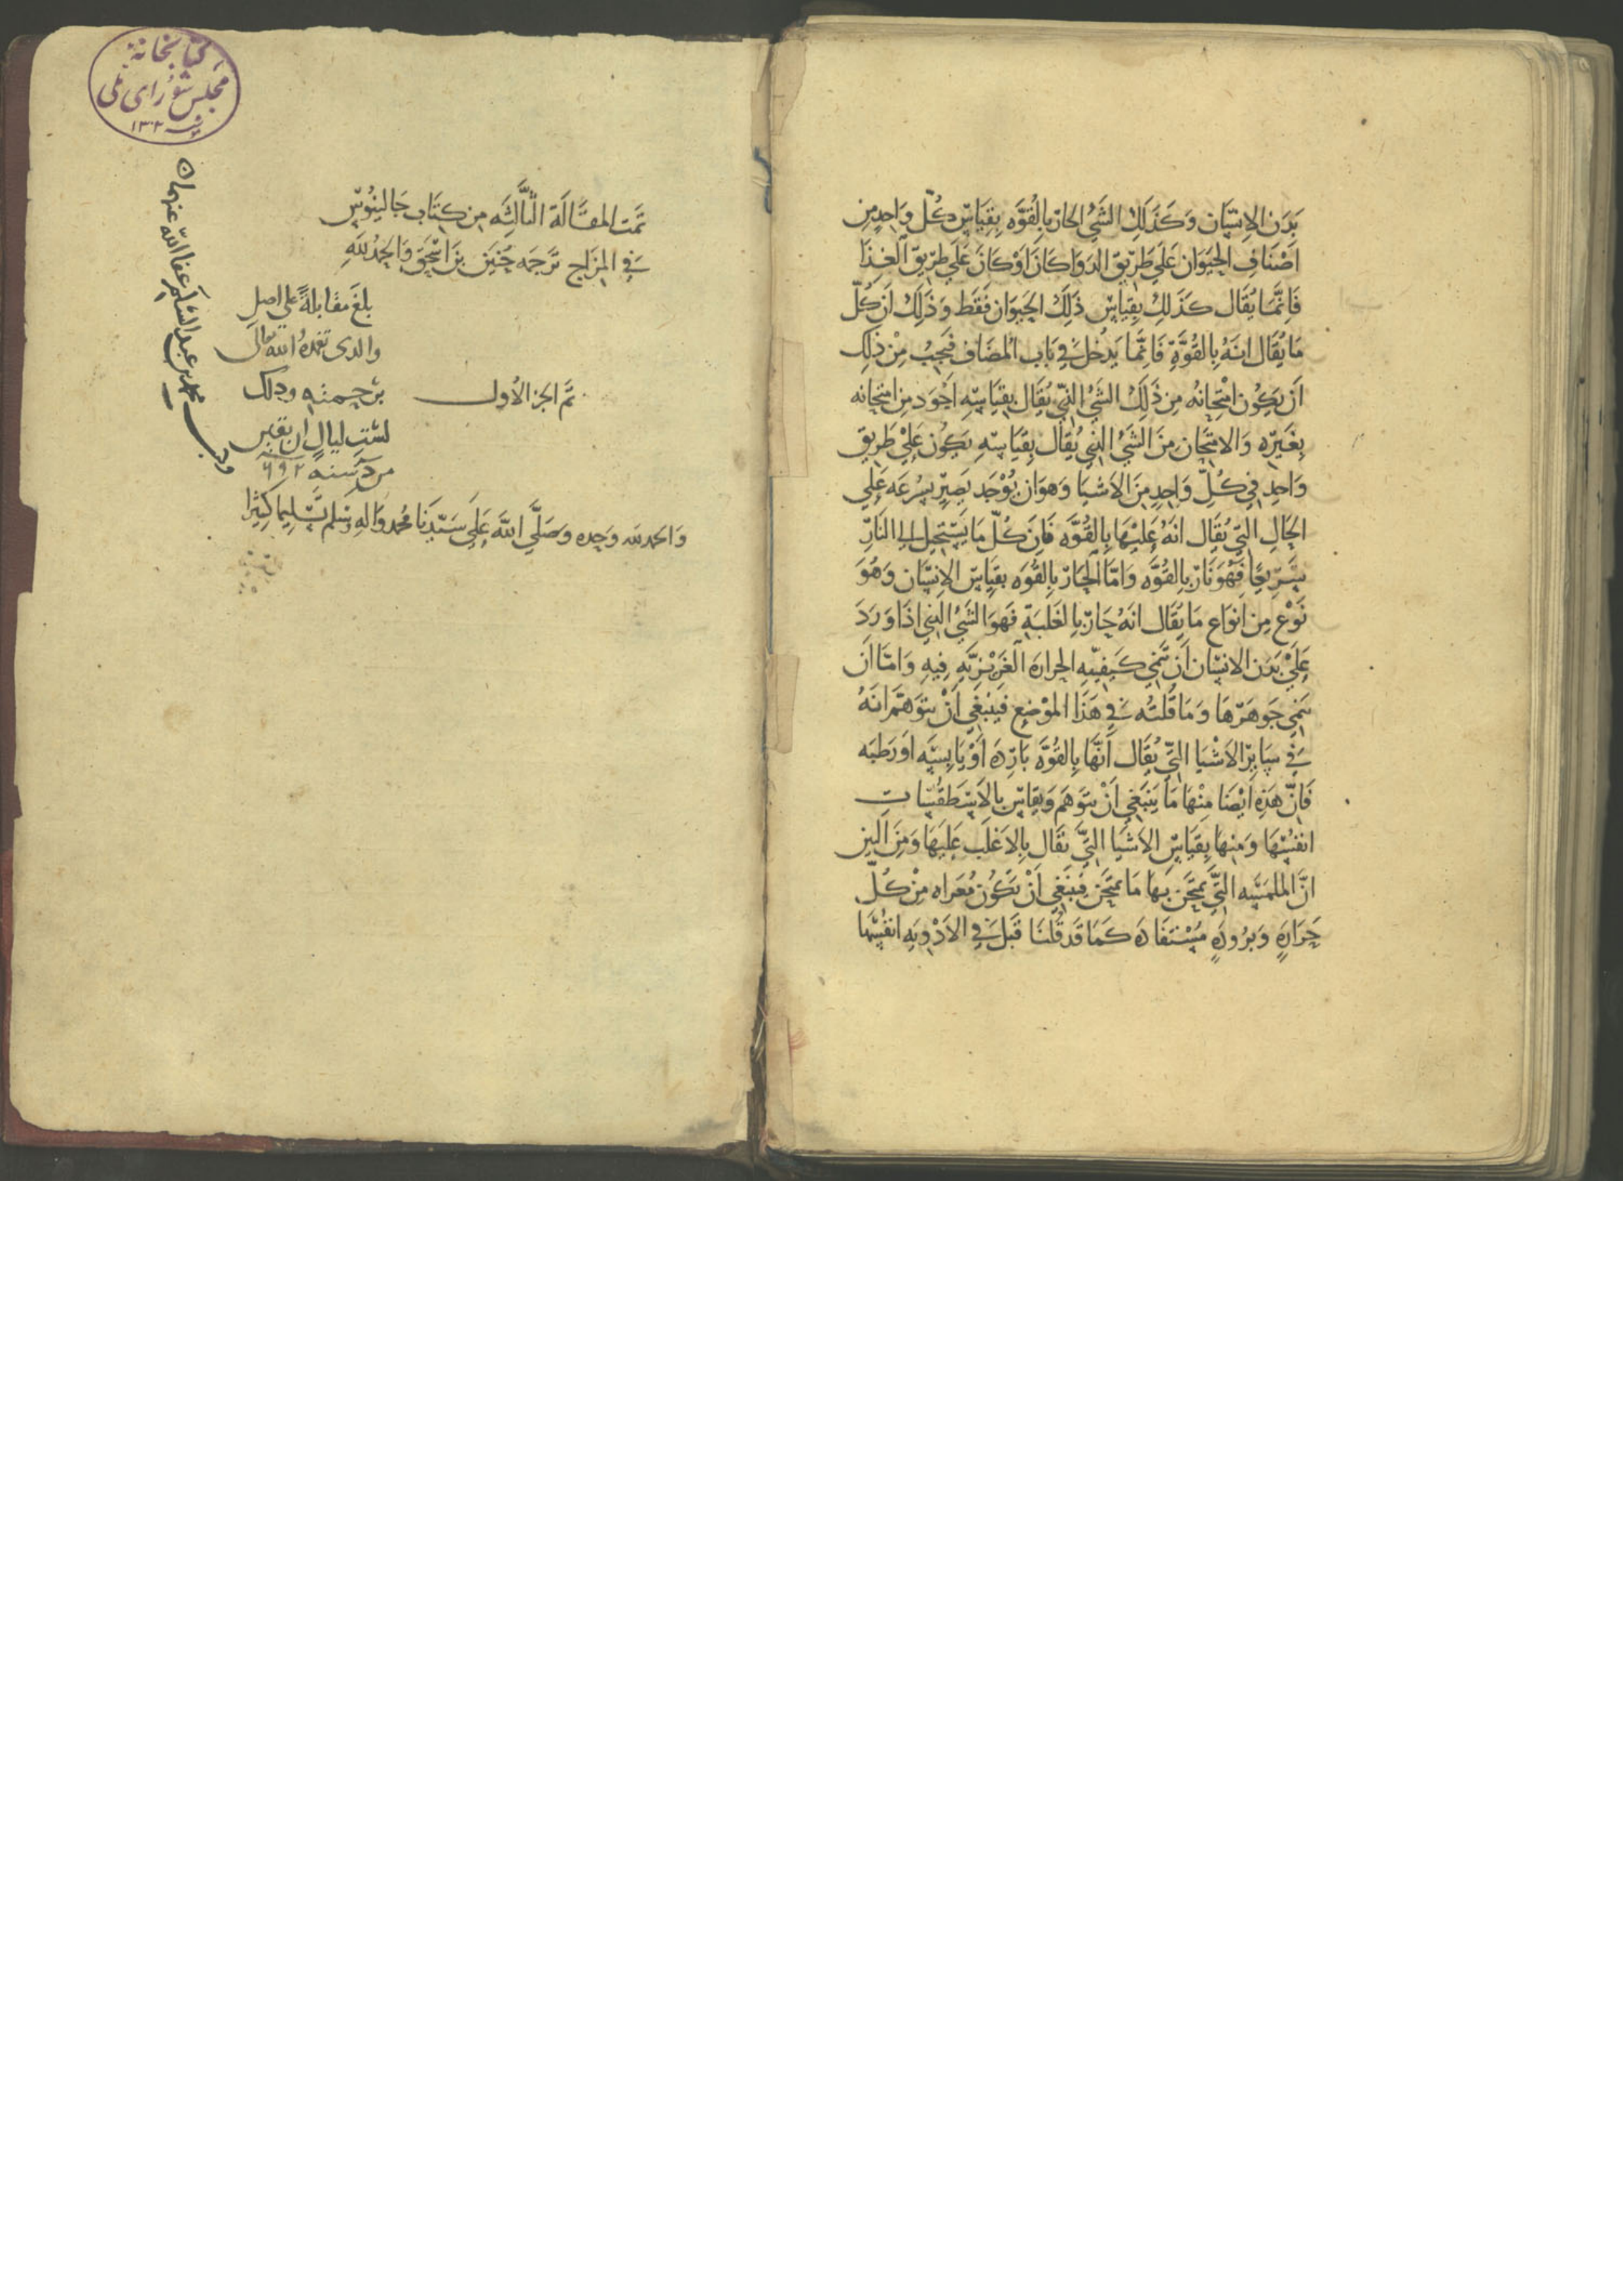 بَدَن الاِنسَان وَكَذَلِكَ الشَيُ الحَارّ بِالقُوَّه بِقِيَاسِ كُلّ وَاحِدٍ مِن
اَصْنَافِ الحَيَوَان عَلَي طَرِيْقِ الدَوَا كَانَ اَوْ كَانَ عَلَي طَرِيقِ الغِذَا
فَاِنَّمَا يُقَال كَذَلِكَ بِقِيَاسِ ذَلِكَ الحَيَوَان فَقَط وَذَلِكَ اَنَ كُلّ
مَا يُقَال اِنَهُ بِالقُوَّةِ فَاِنَّمَا يَدْخُل فِي بَابِ المُضَاف فَيَجِبُ مِنْ ذَلِكَ
اَنْ يَكُون امْتِحَانه مِن ذَلِكَ الشَيُ الذِّي يُقَال بِقِيَاسِهِ اَجْوَد مِن امتِحَانه
بِغَيْرِه وَالامْتِحَان مِنَ الشَيُ الذِي يُقَال بِقِيَاسِهِ يَكُون عَلَيْ طَرِيق
وَاحِد فِي كُلِّ وَاحِدٍ مِنَ الاَشيَا وَهوَ ان يُوْجَد يَصِيْر بِسُرعَه عَلَي
الحَالِ التِّي يُقَال انَهُ عَلَيْهَا بِالقُوَّه فَاِنَ كُلّ مَا يَسْتَحِيل الي النَارِ
سَرِيعًا فَهُوَ نَارٌ بِالقُوَّه وَاَمَّا الحَارّ بِالقُوَه بقِيَاس الاِنسَان وَهُوَ
نَوْع مِن اَنوَاع مَا يُقَال انَهُ حَارّ بِالغَلَبَةِ فَهوَ الشَيُ الذِي اذَا وَرَدَ
عَلَيْ بَدَن الاِنسَان اَن يُنمي كَيفِيّه الحرارَه الغَرِيْزِيَّهِ فِيهِ وَامَّا اَن
يُنمي جَوهَرهَا وَمَا قُلتُه فِي هَذَا المَوْضِع فَيَنبَغِي اَنْ يتوَهَّم انَهُ
فِي سَايِر الاَشْيَا التِّي يُقَال اَنَّهَا بِالقُوَّه بَارِدَه اَوْ يَابِسَه اَو رَطبَه
فَاِنَّ هَذِه اَيْضًا مِنْهَا مَا يَنبَغِي اَنْ يتوَهَّم وَيقَاس بالاَسْطقُسَات
انفسُهَا وَمنهَا بِقيَاسِ الاشيَا التِّي تقَال بِالاغلَب عَلَيهَا وَمِنَ البَيّن
انَّ الملمَسَه التِّي يمتَحَن بهَا مَا يمتحَن يَنبَغِي اَنْ تَكُون مُعَراه مِنْ كُلّ
حَرَارَةٍ وَبرُودَهٍ مُسْتفَادَه كَمَا قَد قُلنَا قَبلُ فِي الاَدْوِيَه انفُسهَا
كتابخانهٔ
مجلس شورای ملی
سنه ١٣٠٢
تمَّت المقَالَة الثَّالِثَه مِن كِتَابِ جَالينُوس
فِي المِزَاجِ تَرجَمَه حُنَيْن بن اسْحَق وَالحمْدُ لله
بلغَ مقابلةً علي اصل
والدى تغمدهُ الله تعالى
برحمته وذلك
لست ليال ان بقين
من سنة ٦٩٢
تمَّ الجز الأول
وَالحمد لله وَحده وَصَلَّي اللهُ عَلَي سَيِّدِنَا مُحمد وَالهِ وَسلم تَسليما كَثِيرًا
محمد بن عبد السلم عفا الله عنهما